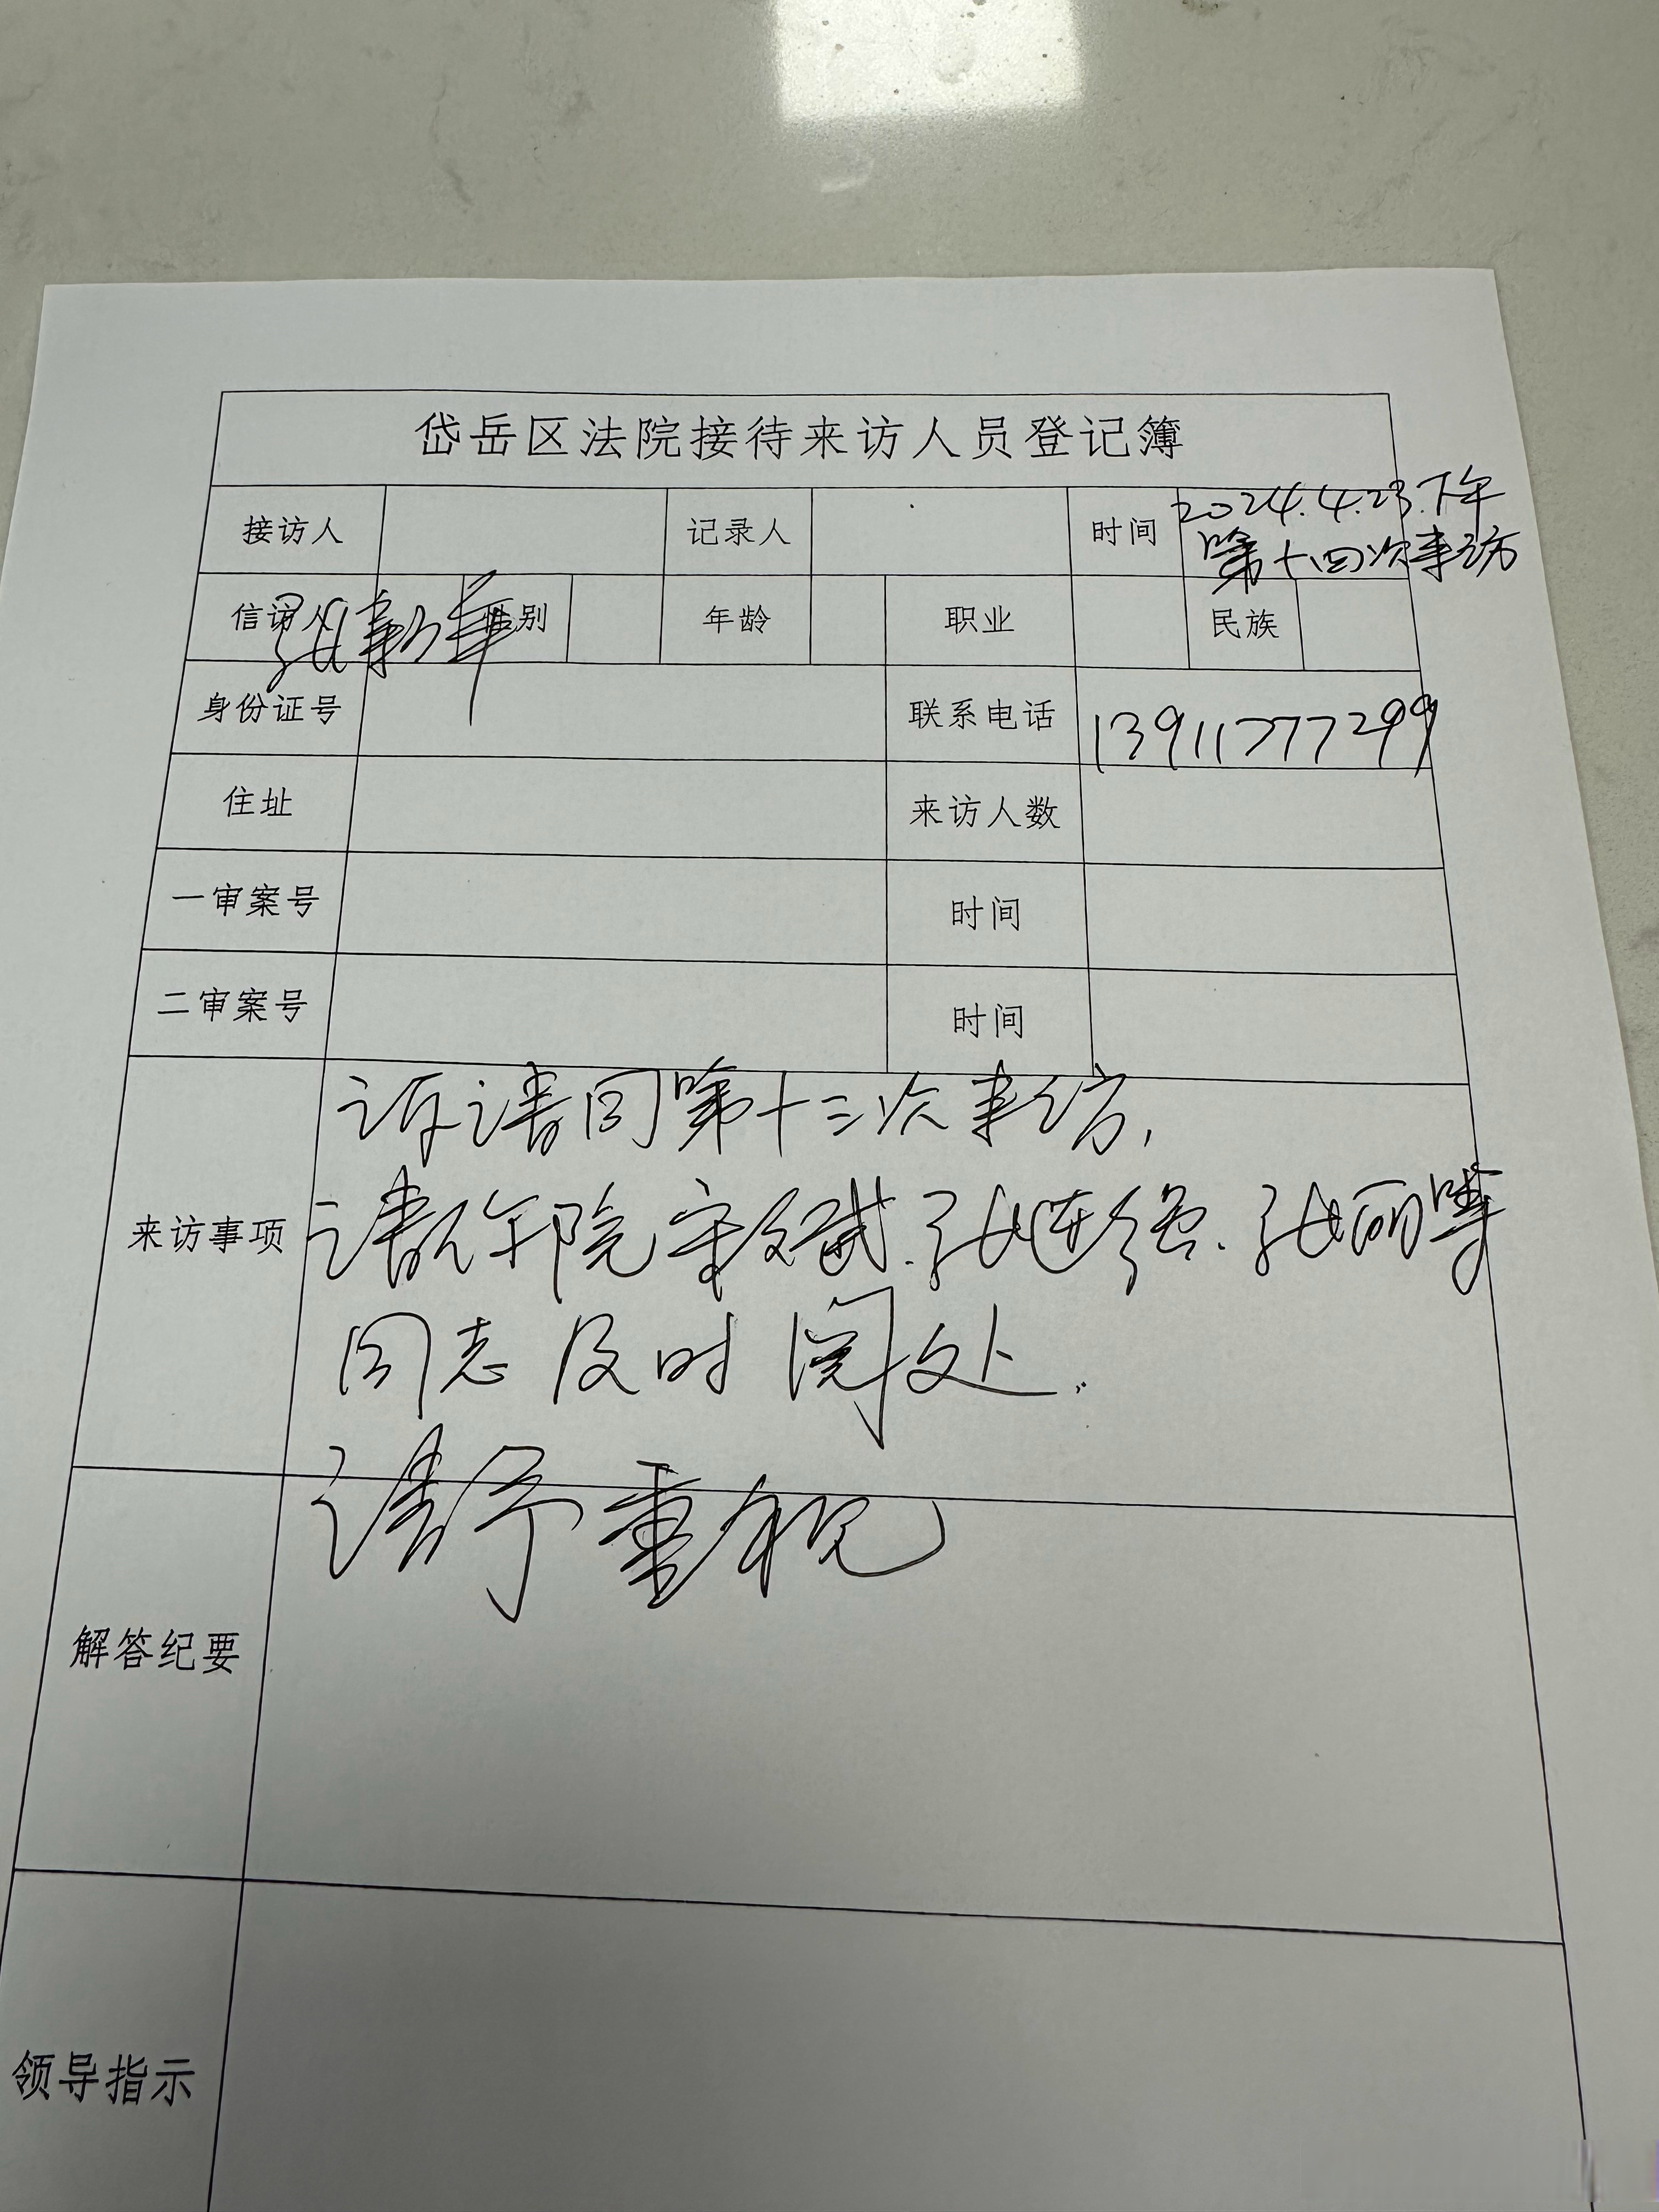 岱岳区法院接待来访人员登记簿
接访人 记录人 时间 2024.4.23.下午
第十四次来访
信访人 张新年 性别 年龄 职业 民族
身份证号 联系电话 13911777299
住址 来访人数
一审案号 时间
二审案号 时间
诉请同第十三次来访,
来访事项 请 院 张连强、张丽等
同志及时阅处.
请予重视
解答纪要
领导指示